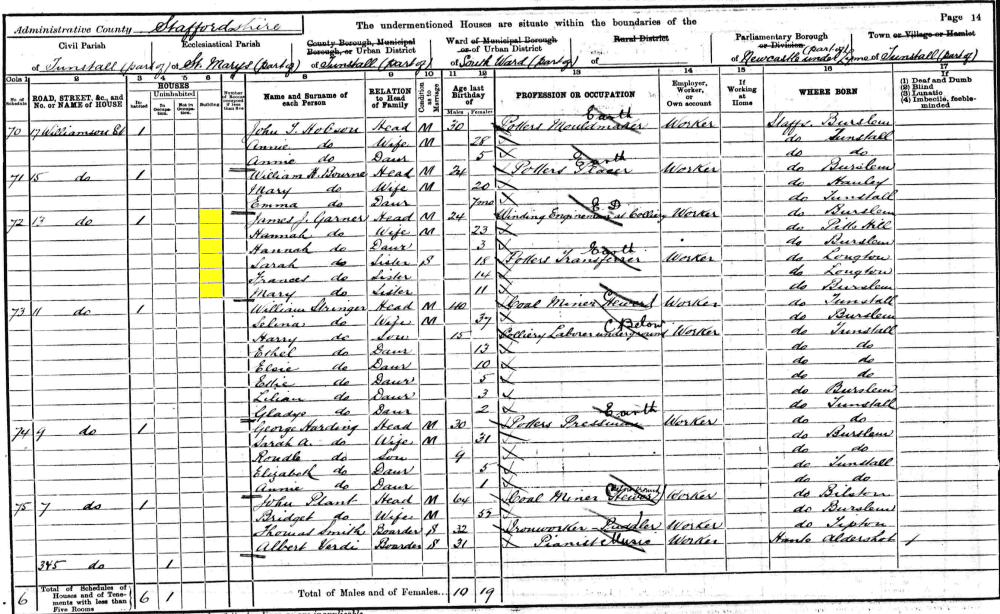 Page 14
Administrative County Staffordshire The undermentioned Houses are situate within the boundaries of the
Civil Parish Ecclesiastical Parish County Borough, Municipal Borough, or Urban District Ward of Municipal Borough or of Urban District Rural District Parliamentary Borough or Division Town or Village or Hamlet
of Tunstall (part of) of St. Marys (part of) of Tunstall (part of) of South Ward (part of) of Newcastle under Lyme (part of) of Tunstall (part of)
Cols 1 2 3 4 5 6 7 8 9 10 11 12 13 14 15 16 17
No. of Schedule ROAD, STREET, &c., and No. or NAME of HOUSE HOUSES Inhabited Uninhabited In Occupation Not in Occupation Building Number of Rooms occupied if less than five Name and Surname of each Person RELATION to Head of Family Condition as to Marriage Age last Birthday of Males Females PROFESSION OR OCCUPATION Employer, Worker, or Own account If Working at Home WHERE BORN (1) Deaf and Dumb (2) Blind (3) Lunatic (4) Imbecile, feeble-minded
70 17 Williamson St 1 John T. Hobson Head M 30 Potters Mouldmaker Earth Worker Staffs. Burslem
Annie do Wife M 28 do Tunstall
Annie do Daur 5 do do
71 15 do 1 William H. Bourne Head M 24 Potters Placer Earth Worker do Burslem
Mary do Wife M 20 do Hanley
Emma do Daur 7mo do Tunstall
72 13 do 1 James J. Garner Head M 24 Winding Engineman at Colliery Worker do Burslem
Hannah do Wife M 23 do Pitts Hill
Hannah do Daur 3 do Burslem
Sarah do Sister S 18 Potters Transferrer Earth Worker do Longton
Frances do Sister 14 do Longton
Mary do Sister 11 do Burslem
73 11 do 1 William Stringer Head M 40 Coal Miner Hewer Worker do Tunstall
Selina do Wife M 37 do Burslem
Harry do Son 15 Colliery Laborer underground Below Worker do Tunstall
Ethel do Daur 13 do do
Elsie do Daur 10 do do
Effie do Daur 5 do do
Lilian do Daur 3 do Burslem
Gladys do Daur 2 do Tunstall
74 9 do 1 George Harding Head M 30 Potters Pressman Earth Worker do do
Sarah A. do Wife M 31 do Burslem
do Son 9 do do
Elizabeth do Daur 5 do Tunstall
Annie do Daur 1 do do
75 7 do 1 John Plant Head M 64 Coal Miner Hewer Worker do Bilston
Bridget do Wife M 55 do Burslem
Thomas Smith Boarder S 32 Ironworker Puddler Worker do Tipton
Albert Verdi Boarder S 31 Pianist Music Worker Hants Aldershot
345 do 1
6 Total of Schedules of Houses and of Tenements with less than Five Rooms 6 1 Total of Males and of Females... 10 19